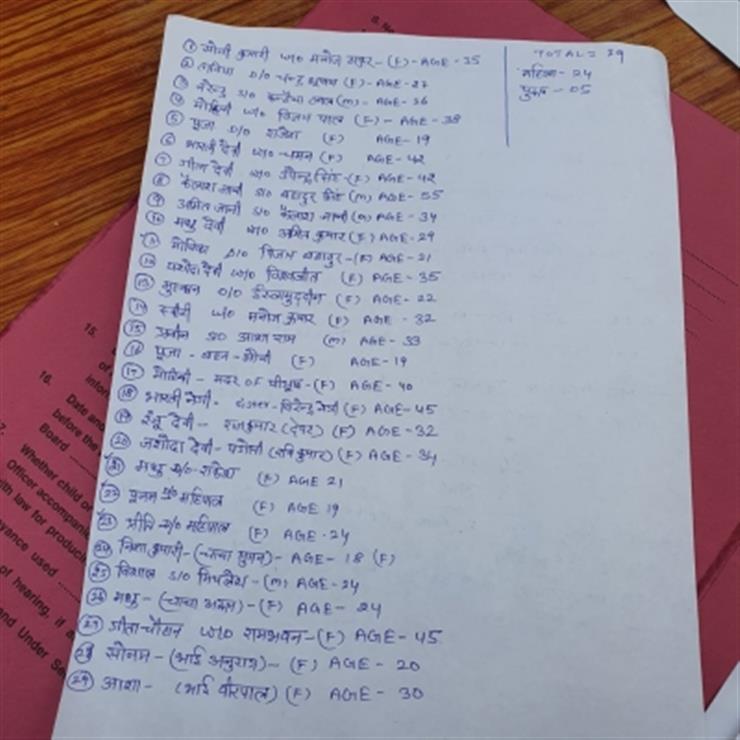 ① सोनी कुमारी w/o मनोज ठाकुर - (F) - AGE - 35
② D/O चन्द्र (F) - AGE - 27
③ S/O कन्हैया लाल (M) - AGE - 36
④ मोहिनी W/O विजय पाल (F) - AGE - 38
⑤ पूजा D/O राजेश (F) AGE - 19
⑥ भारती देवी W/O चमन (F) AGE - 42
⑦ गीता देवी W/O उपेन्द्र सिंह (F) AGE - 42
⑧ कैलाश S/O बहादुर सिंह (M) AGE - 55
⑨ अमित S/O कैलाश (M) AGE - 34
⑩ मधु देवी W/O अमित कुमार (F) AGE - 29
⑪ D/O विजय बहादुर - (F) AGE - 21
⑫ यशोदा देवी W/O विश्वजीत (F) AGE - 35
⑬ मुस्कान D/O (F) AGE - 22
⑭ W/O मनोज कुमार (F) AGE - 32
⑮ प्रवीन S/O आशा राम (M) AGE - 33
⑯ पूजा - बहन - (F) AGE - 19
⑰ मोहिनी - मदर OF पीयूष - (F) AGE - 40
⑱ भारती नेगी - विरेन्द्र नेगी (F) AGE - 45
⑲ देवी - राजकुमार (देवर) (F) AGE - 32
⑳ जशोदा देवी - पड़ोसी (रवि कुमार) (F) AGE - 34
㉑ मधु D/O - राजेश (F) AGE 21
㉒ पूनम D/O महिपाल (F) AGE 19
㉓ प्रीति D/O महिपाल (F) AGE - 24
㉔ निशा कुमारी - (चाचा सुमन) - AGE - 18 (F)
㉕ विशाल S/O मिथलेश - (M) AGE - 24
㉖ मधु - (चाचा ) - (F) AGE - 24
㉗ गीता चौहान W/O रामभवन - (F) AGE - 45
㉘ सोनम - (भाई अनुराग) - (F) AGE - 20
㉙ आशा - (भाई वीरपाल) (F) AGE - 30
TOTAL = 29
महिला - 24
पुरुष - 05
15.
of
infor
16. Date and
before the
Board
Whether child or
Officer accompan
ith law for produci
vance used
of hearing, if a
and Under Se